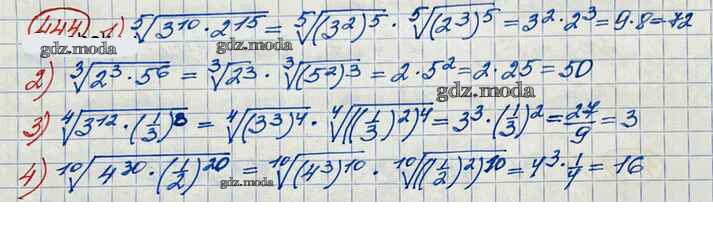 444 1) ⁵√(3¹⁰ · 2¹⁵) = ⁵√((3²)⁵) · ⁵√((2³)⁵) = 3² · 2³ = 9 · 8 = 72
gdz.moda gdz.moda
2) ³√(2³ · 5⁶) = ³√(2³) · ³√((5²)³) = 2 · 5² = 2 · 25 = 50
gdz.moda
3) ⁴√(3¹² · (1/3)⁸) = ⁴√((3³)⁴) · ⁴√(((1/3)²)⁴) = 3³ · (1/3)² = 27/9 = 3
gdz.moda
4) ¹⁰√(4³⁰ · (1/2)²⁰) = ¹⁰√((4³)¹⁰) · ¹⁰√(((1/2)²)¹⁰) = 4³ · 1/4 = 16
gdz.moda